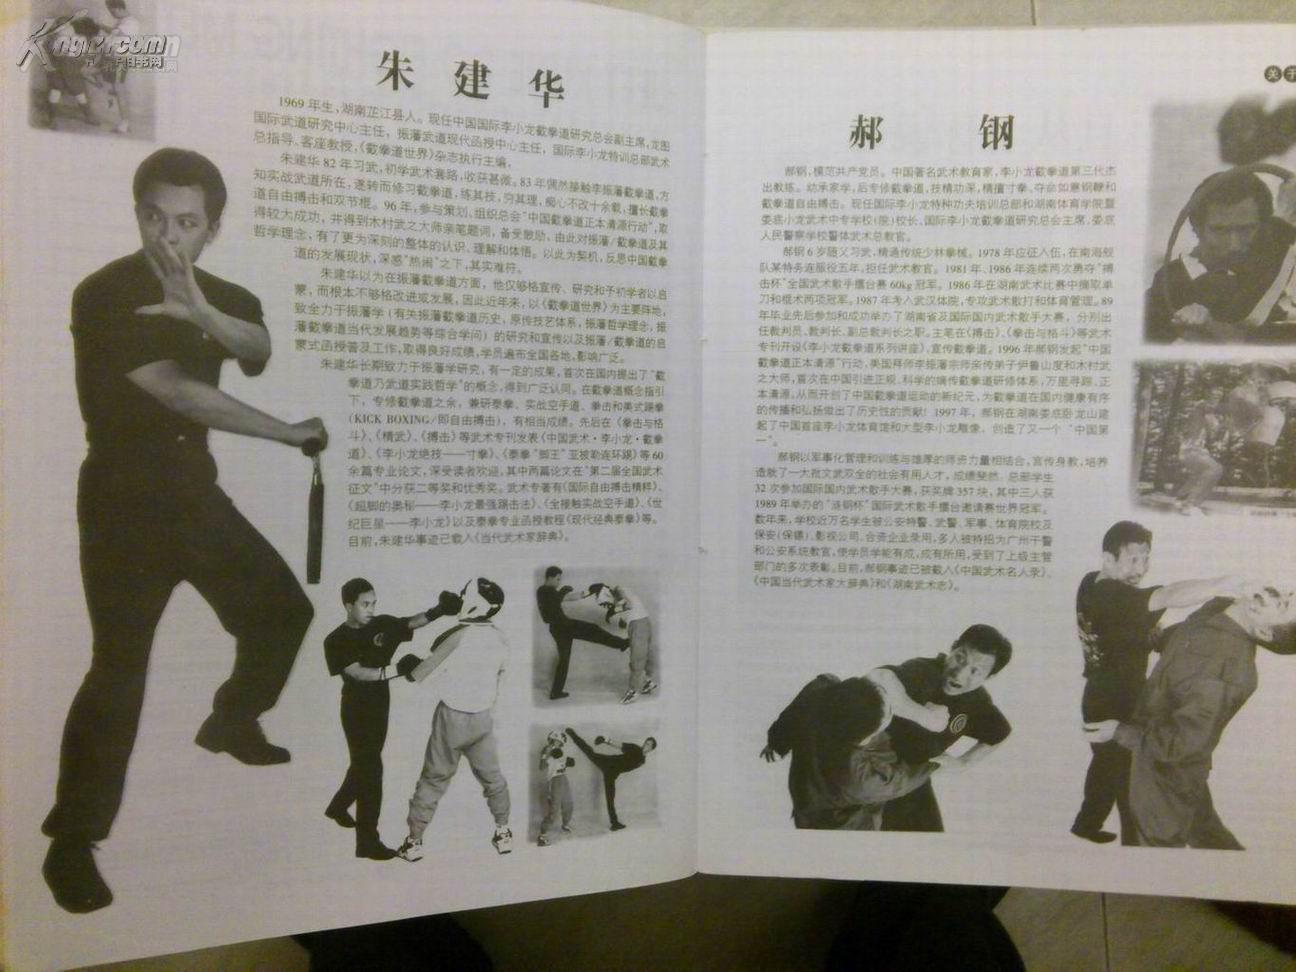 朱建华
1969年生，湖南芷江县人。现任中国国际李小龙截拳道研究总会副主席，龙图
国际武道研究中心主任，振藩武道现代函授中心主任，国际李小龙特训总部武术
总指导、客座教授，《截拳道世界》杂志执行主编，
朱建华82年习武，初学武术套路，收获甚微。83年偶然接触李振藩截拳道，方
知实战武道所在，遂转而修习截拳道，练其技，穷其理，痴心不改十余载，擅长截拳
道自由搏击和双节棍。96年，参与策划、组织总会“中国截拳道正本清源行动”，取
得较大成功，并得到木村武之大师亲笔题词，备受鼓励，由此对振藩/截拳道及其
哲学理念，有了更为深刻的整体的认识、理解和体悟。以此为契机，反思中国截拳
道的发展现状，深感“热闹”之下，其实难符。
朱建华以为在振藩截拳道方面，他仅够格宣传、研究和予初学者以启
蒙，而根本不够格改进或发展，因此近年来，以《截拳道世界》为主要阵地，
致全力于振藩学（有关振藩截拳道历史，原传技艺体系，振藩哲学理念，振
藩截拳道当代发展趋势等综合学问）的研究和宣传以及振藩/截拳道的启
蒙式函授普及工作，取得良好成绩，学员遍布全国各地，影响广泛。
朱建华长期致力于振藩学研究，有一定的成果，首次在国内提出了“截
拳道乃武道实践哲学”的概念，得到广泛认同。在截拳道概念指引
下，专修截拳道之余，兼研泰拳、实战空手道、拳击和美式踢拳
(KICK BOXING/即自由搏击)，有相当成绩。先后在《拳击与格
斗》、《精武》、《搏击》等武术专刊发表《中国武术·李小龙·截拳
道》、《李小龙绝技——寸拳》、《泰拳“脚王”亚披勒连环踢》等60
余篇专业论文，深受读者欢迎，其中两篇论文在“第二届全国武术
征文”中分获二等奖和优秀奖。武术专著有《国际自由搏击精粹》、
《超脚的奥秘——李小龙最强踢击法》、《全接触实战空手道》、《世
纪巨星——李小龙》以及泰拳专业函授教程《现代经典泰拳》等。
目前，朱建华事迹已载入《当代武术家辞典》。
关于
郝钢
郝钢，模范共产党员。中国著名武术教育家，李小龙截拳道第三代杰
出教练。幼承家学，后专修截拳道，技精功深，精擅寸拳、夺命如意钢鞭和
截拳道自由搏击。现任国际李小龙特种功夫培训总部和湖南体育学院暨
娄底小龙武术中专学校(院)校长、国际李小龙截拳道研究总会主席，娄底
人民警察学校警体武术总教官。
郝钢6岁随父习武，精通传统少林拳械。1978年应征入伍，在南海舰
队某特务连服役五年，担任武术教官。1981年、1986年连续两次勇夺“搏
击杯”全国武术散手擂台赛60kg冠军。1986年在湖南武术比赛中摘取单
刀和棍术两项冠军。1987年考入武汉体院，专攻武术散打和体育管理。89
年毕业先后参加和成功举办了湖南省及国际国内武术散手大赛，分别出
任裁判员、裁判长、副总裁判长之职。主笔在《搏击》、《拳击与格斗》等武术
专刊开设《李小龙截拳道系列讲座》，宣传截拳道。1996年郝钢发起“中国
截拳道正本清源”行动，美国拜师李振藩宗师亲传弟子伊鲁山度和木村武
之大师，首次在中国引进正规、科学的嫡传截拳道研修体系，万里寻踪，正
本清源，从而开创了中国截拳道运动的新纪元，为截拳道在国内健康有序
的传播和弘扬做出了历史性的贡献！1997年，郝钢在湖南娄底卧龙山建
起了中国首座李小龙体育馆和大型李小龙雕像，创造了又一个“中国第
一”。
郝钢以军事化管理和训练与雄厚的师资力量相结合，言传身教，培养
造就了一大批文武双全的社会有用人才，成绩斐然。总部学生
32次参加国际国内武术散手大赛，获奖牌357块，其中三人获
1989年举办的“涟钢杯”国际武术散手擂台邀请赛世界冠军。
数年来，学校近万名学生被公安特警、武警、军事、体育院校及
保安(保镖)、影视公司、合资企业录用，多人被特招为广州干警
和公安系统教官，使学员学能有成，成有所用，受到了上级主管
部门的多次表彰。目前，郝钢事迹已被载入《中国武术名人录》、
《中国当代武术家大辞典》和《湖南武术志》。